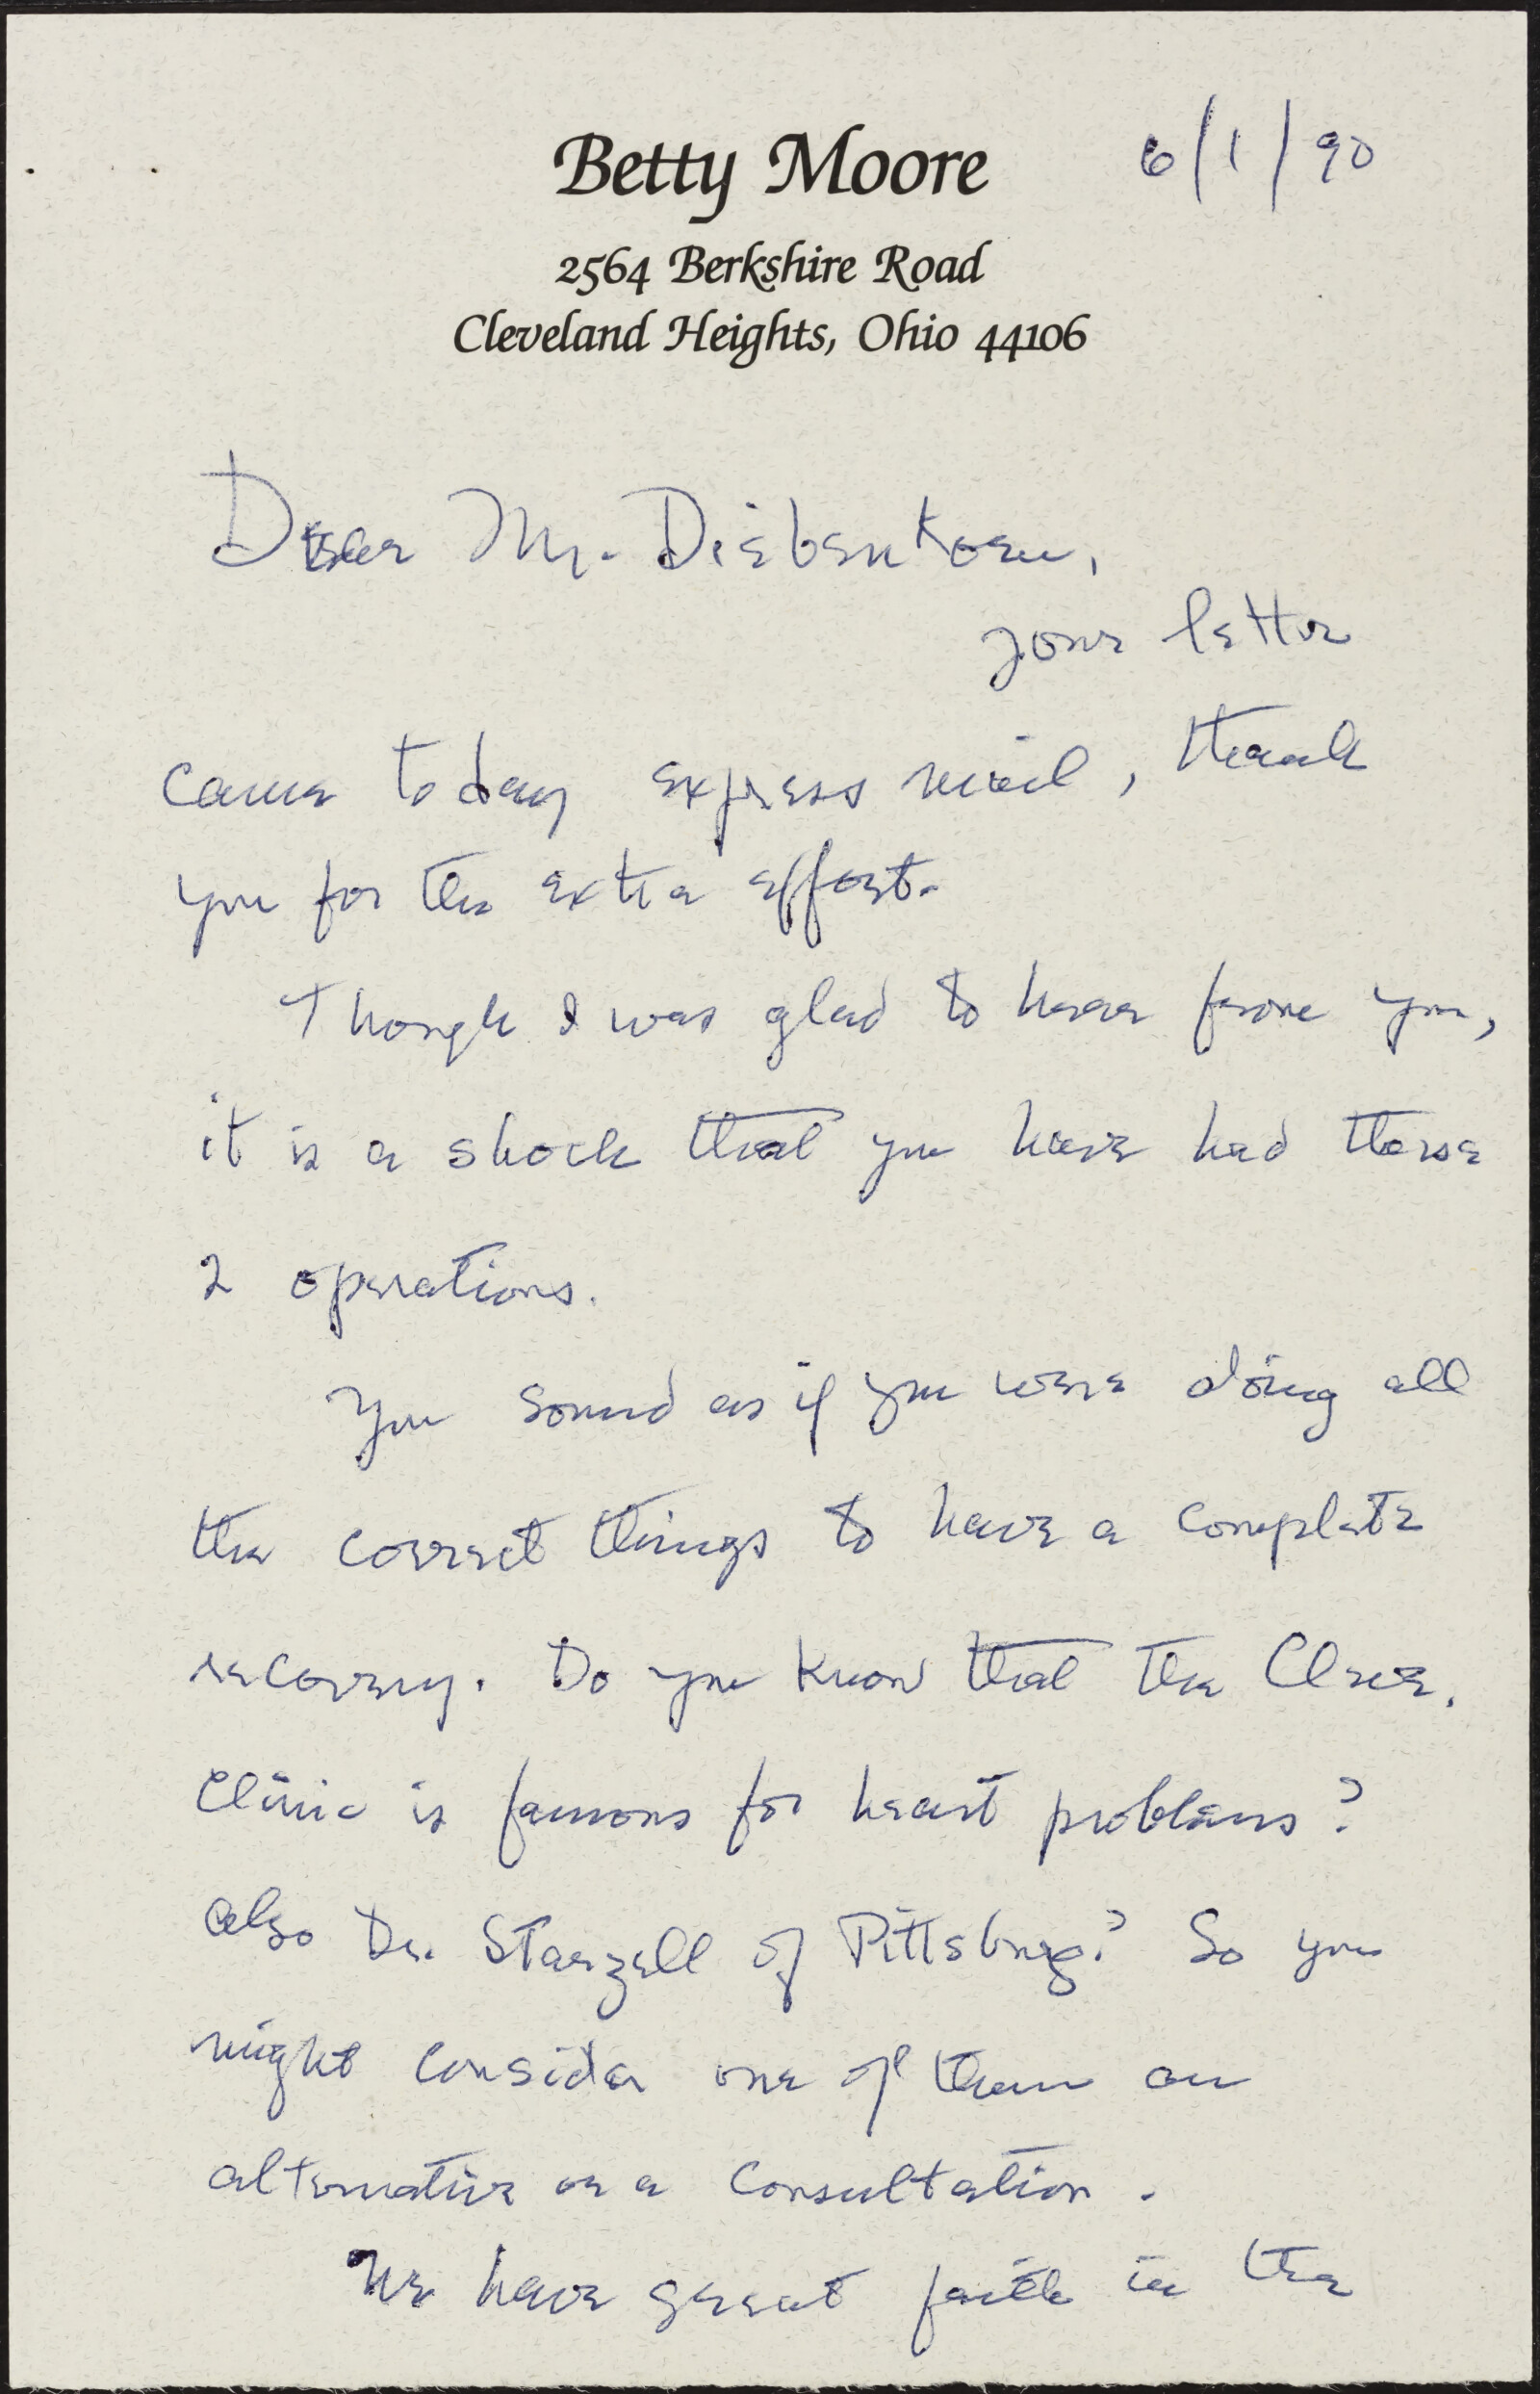 Betty Moore 6/1/90
2564 Berkshire Road
Cleveland Heights, Ohio 44106
Dear Mr. Diebenkorn,
your letter
came today express mail, thank
you for the extra effort.
Though I was glad to hear from you,
it is a shock that you have had these
2 operations.
You sound as if you were doing all
the correct things to have a complete
recovery. Do you know that the Cleve.
Clinic is famous for heart problems?
Also Dr. Starzell of Pittsburg? So you
might consider one of them an
alternative or a consultation.
We have great faith in the